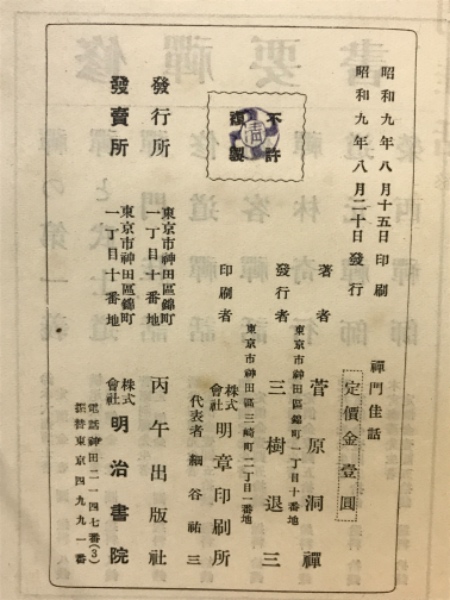 昭和九年八月十五日印刷
昭和九年八月二十日發行
禪門佳話
定價金壹圓
不許
複製
著者 菅原洞禪
東京市神田區錦町一丁目十番地
發行者 三樹退三
東京市神田區三崎町二丁目一番地
印刷者 株式會社 明章印刷所
代表者 細谷祐三
發行所 東京市神田區錦町一丁目十番地 丙午出版社
發賣所 東京市神田區錦町一丁目十番地 株式會社 明治書院
電話神田二一四七番(3)
振替東京四九九一番